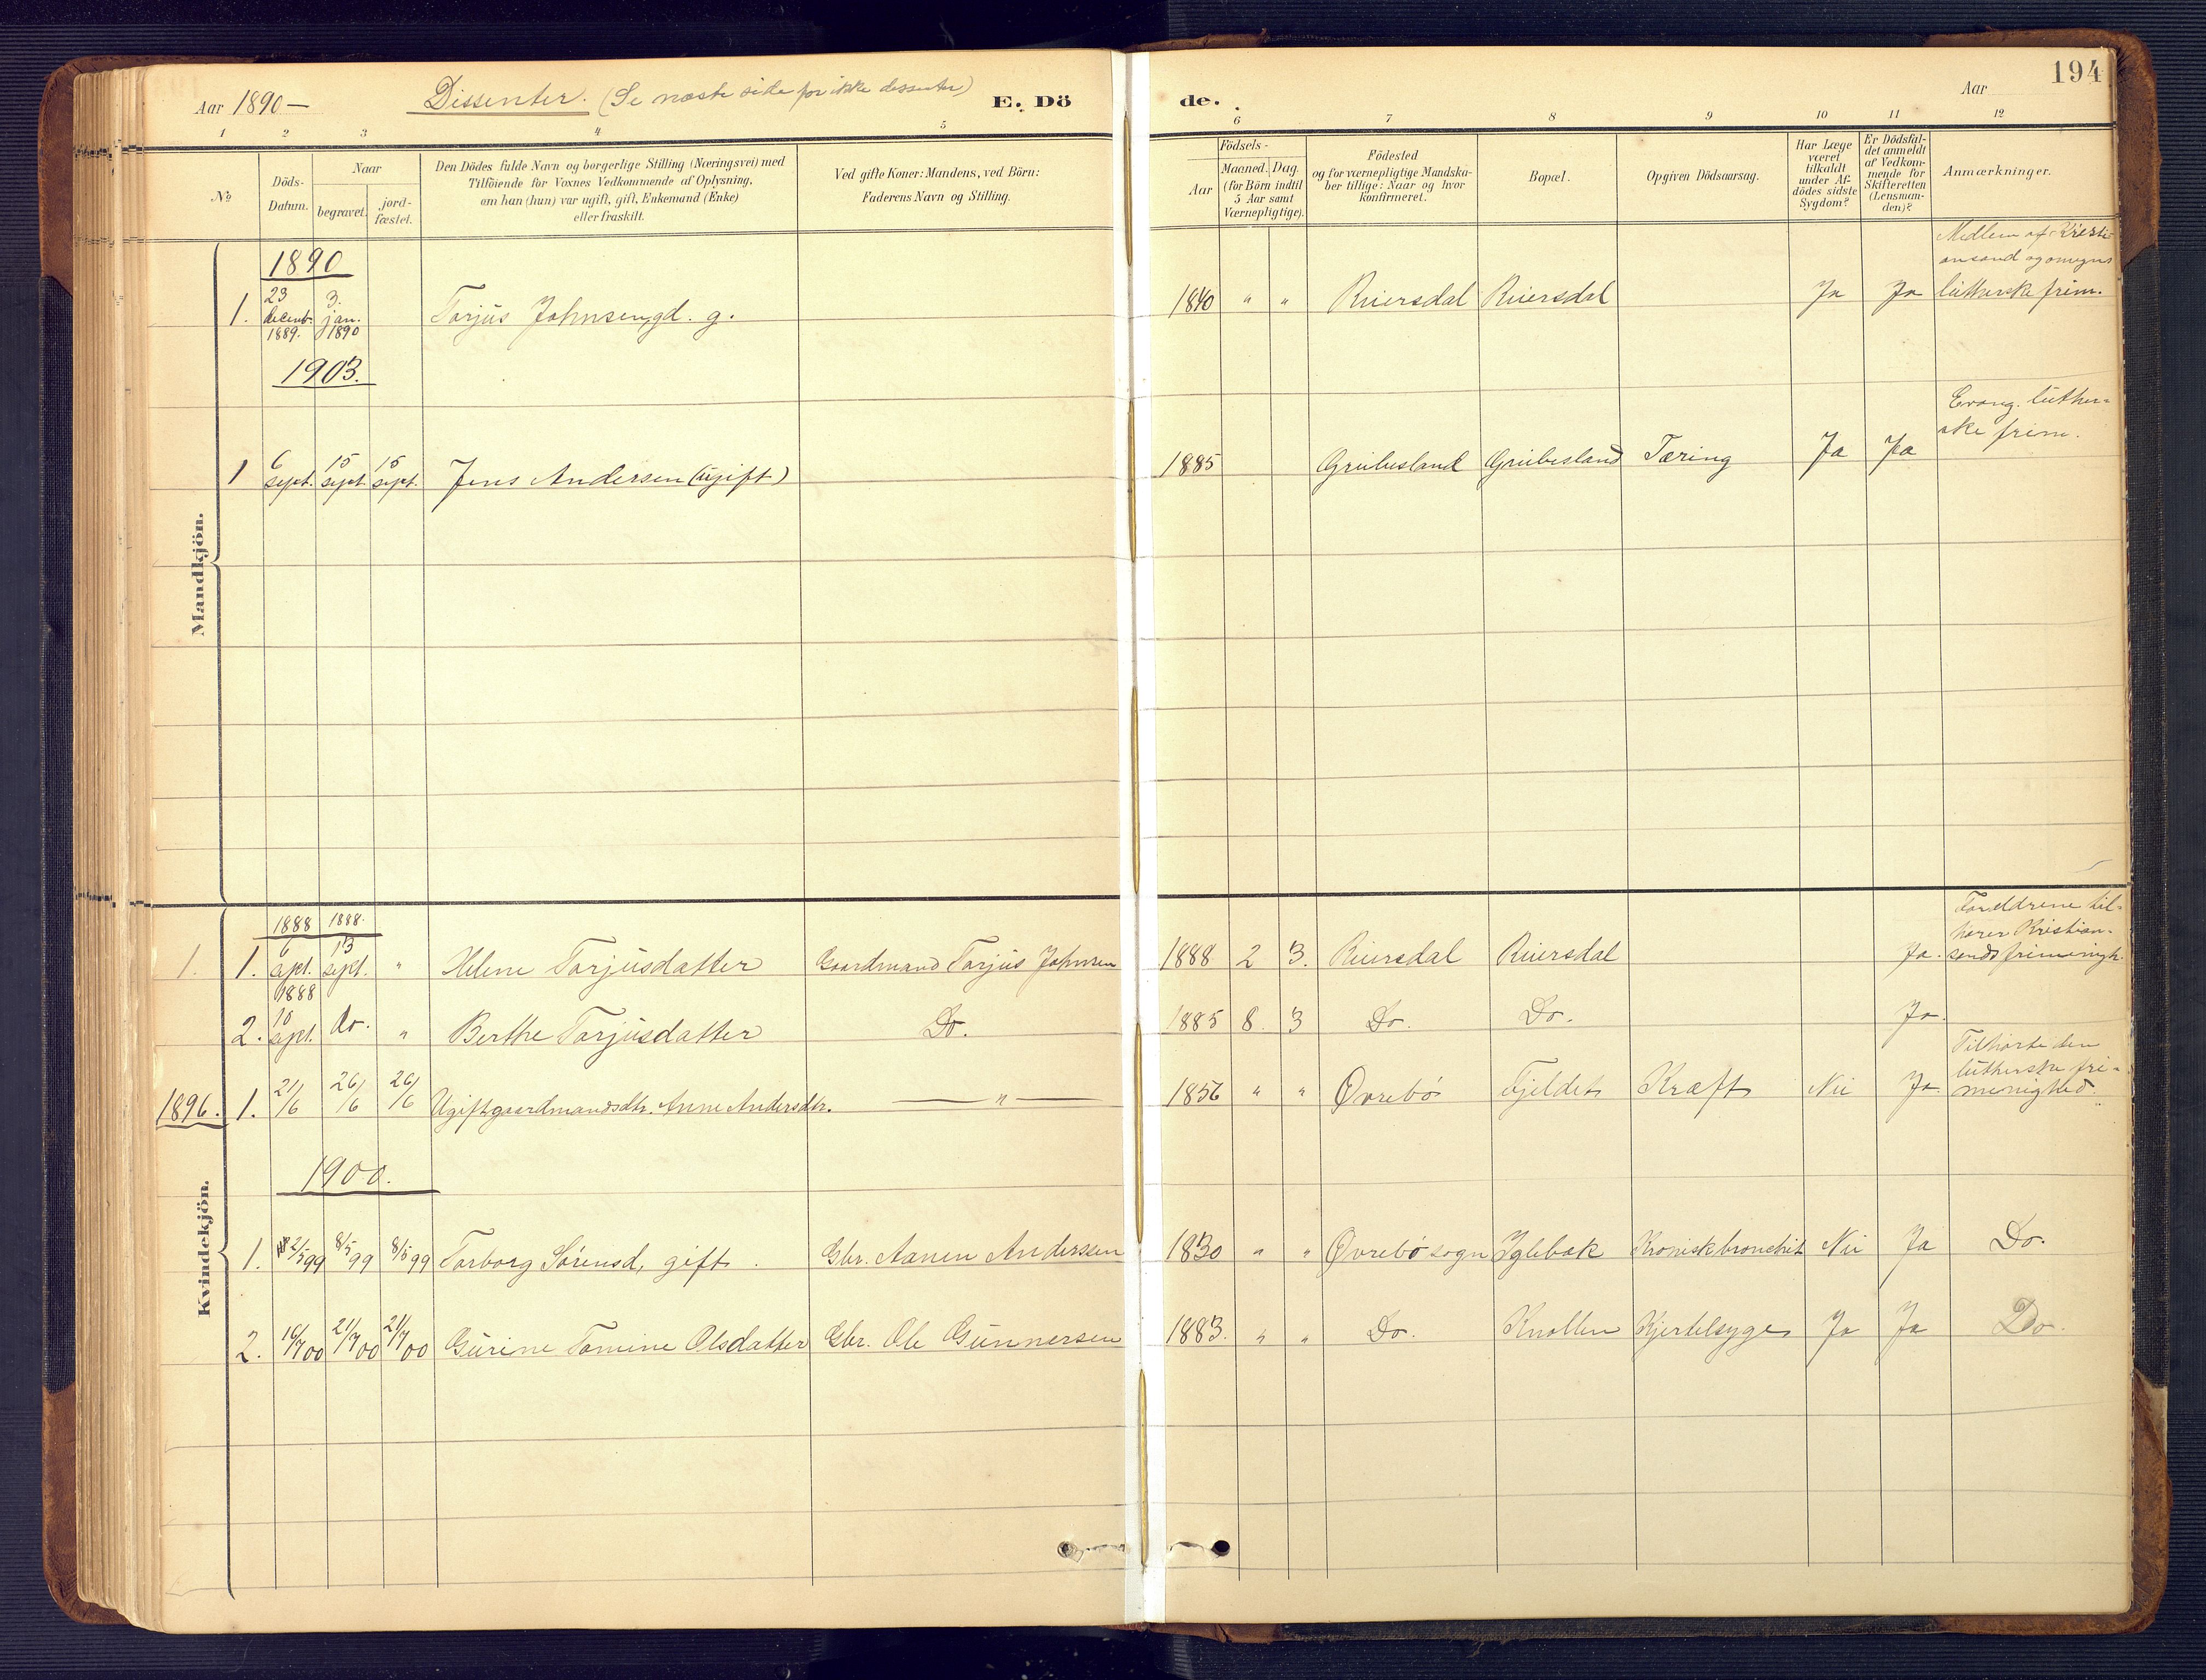 194
Aar 1890 — Dissenter. (Se næste side for ikke dissenter) E. Dö de. Aar
1 2 3 4 5 6 7 8 9 10 11 12
№
Döds-
Datum.
Naar
begravet.
jord-
fæstet.
Den Dödes fulde Navn og borgerlige Stilling (Næringsvei) med
Tilföiende for Voxnes Vedkommende af Oplysning,
om han (hun) var ugift, gift, Enkemand (Enke)
eller fraskilt.
Ved gifte Koner: Mandens, ved Börn:
Faderens Navn og Stilling.
Födsels-
Aar
Maaned. Dag.
(for Börn indtil
5 Aar samt
Værnepligtige).
Födested
og for værnepligtige Mandska-
ber tillige: Naar og hvor
konfirmeret.
Bopæl.
Opgiven Dödsaarsag.
Har Læge
været
tilkaldt
under Af-
dödes sidste
Sygdom?
Er Dödsfal-
det anmeldt
af Vedkom-
mende for
Skifteretten
(Lensman-
den)?
Anmærkninger.
Mandkjön.
1890
1. 23 decemb. 1889. 3. jan. 1890 Torjus Johnsen, gd. g. 1840 " " Riiersdal Riiersdal Ja Ja
Medlem af Kristi-
ansand og omegns
lutherske frim.
1903.
1 6 sept. 15 sept. 15 sept. Jens Andersen (ugift) 1885 Grubesland Grubesland Tæring Ja Ja
Evang. luther-
ske frim.
Kvindekjön.
1888 1888.
1. 1. 6 sept. 13 sept. " Helene Torjusdatter Gaardmand Torjus Johnsen 1888 2 3. Riiersdal Riiersdal Ja.
Forældrene til-
hører Kristian-
sands frimenigh.
1888
2. 10 sept. do. " Berthe Torjusdatter Do. 1885 8. 3 Do. Do. Ja.
1896. 1. 21/6 26/6 26/6 Ugift gaardmandsdtr. Anne Andersdtr. — " — 1856 " " Øvrebø Fjeldet Kræft Nei Ja.
Tilhørte den
lutherske fri-
menighed.
1900.
1. 2/5 99 8/5 99 8/5 99 Torborg Sørensd, gift. Gbr. Aanen Anderssen 1830 " " Øvrebø sogn Iglebæk Kronisk bronchit Nei Ja Do.
2. 16/7 00 21/7 00 21/7 00 Gurine Tomine Olsdatter Gbr. Ole Gunnersen 1883. " " Do. Knollen Kjertelsyge Ja Ja Do.